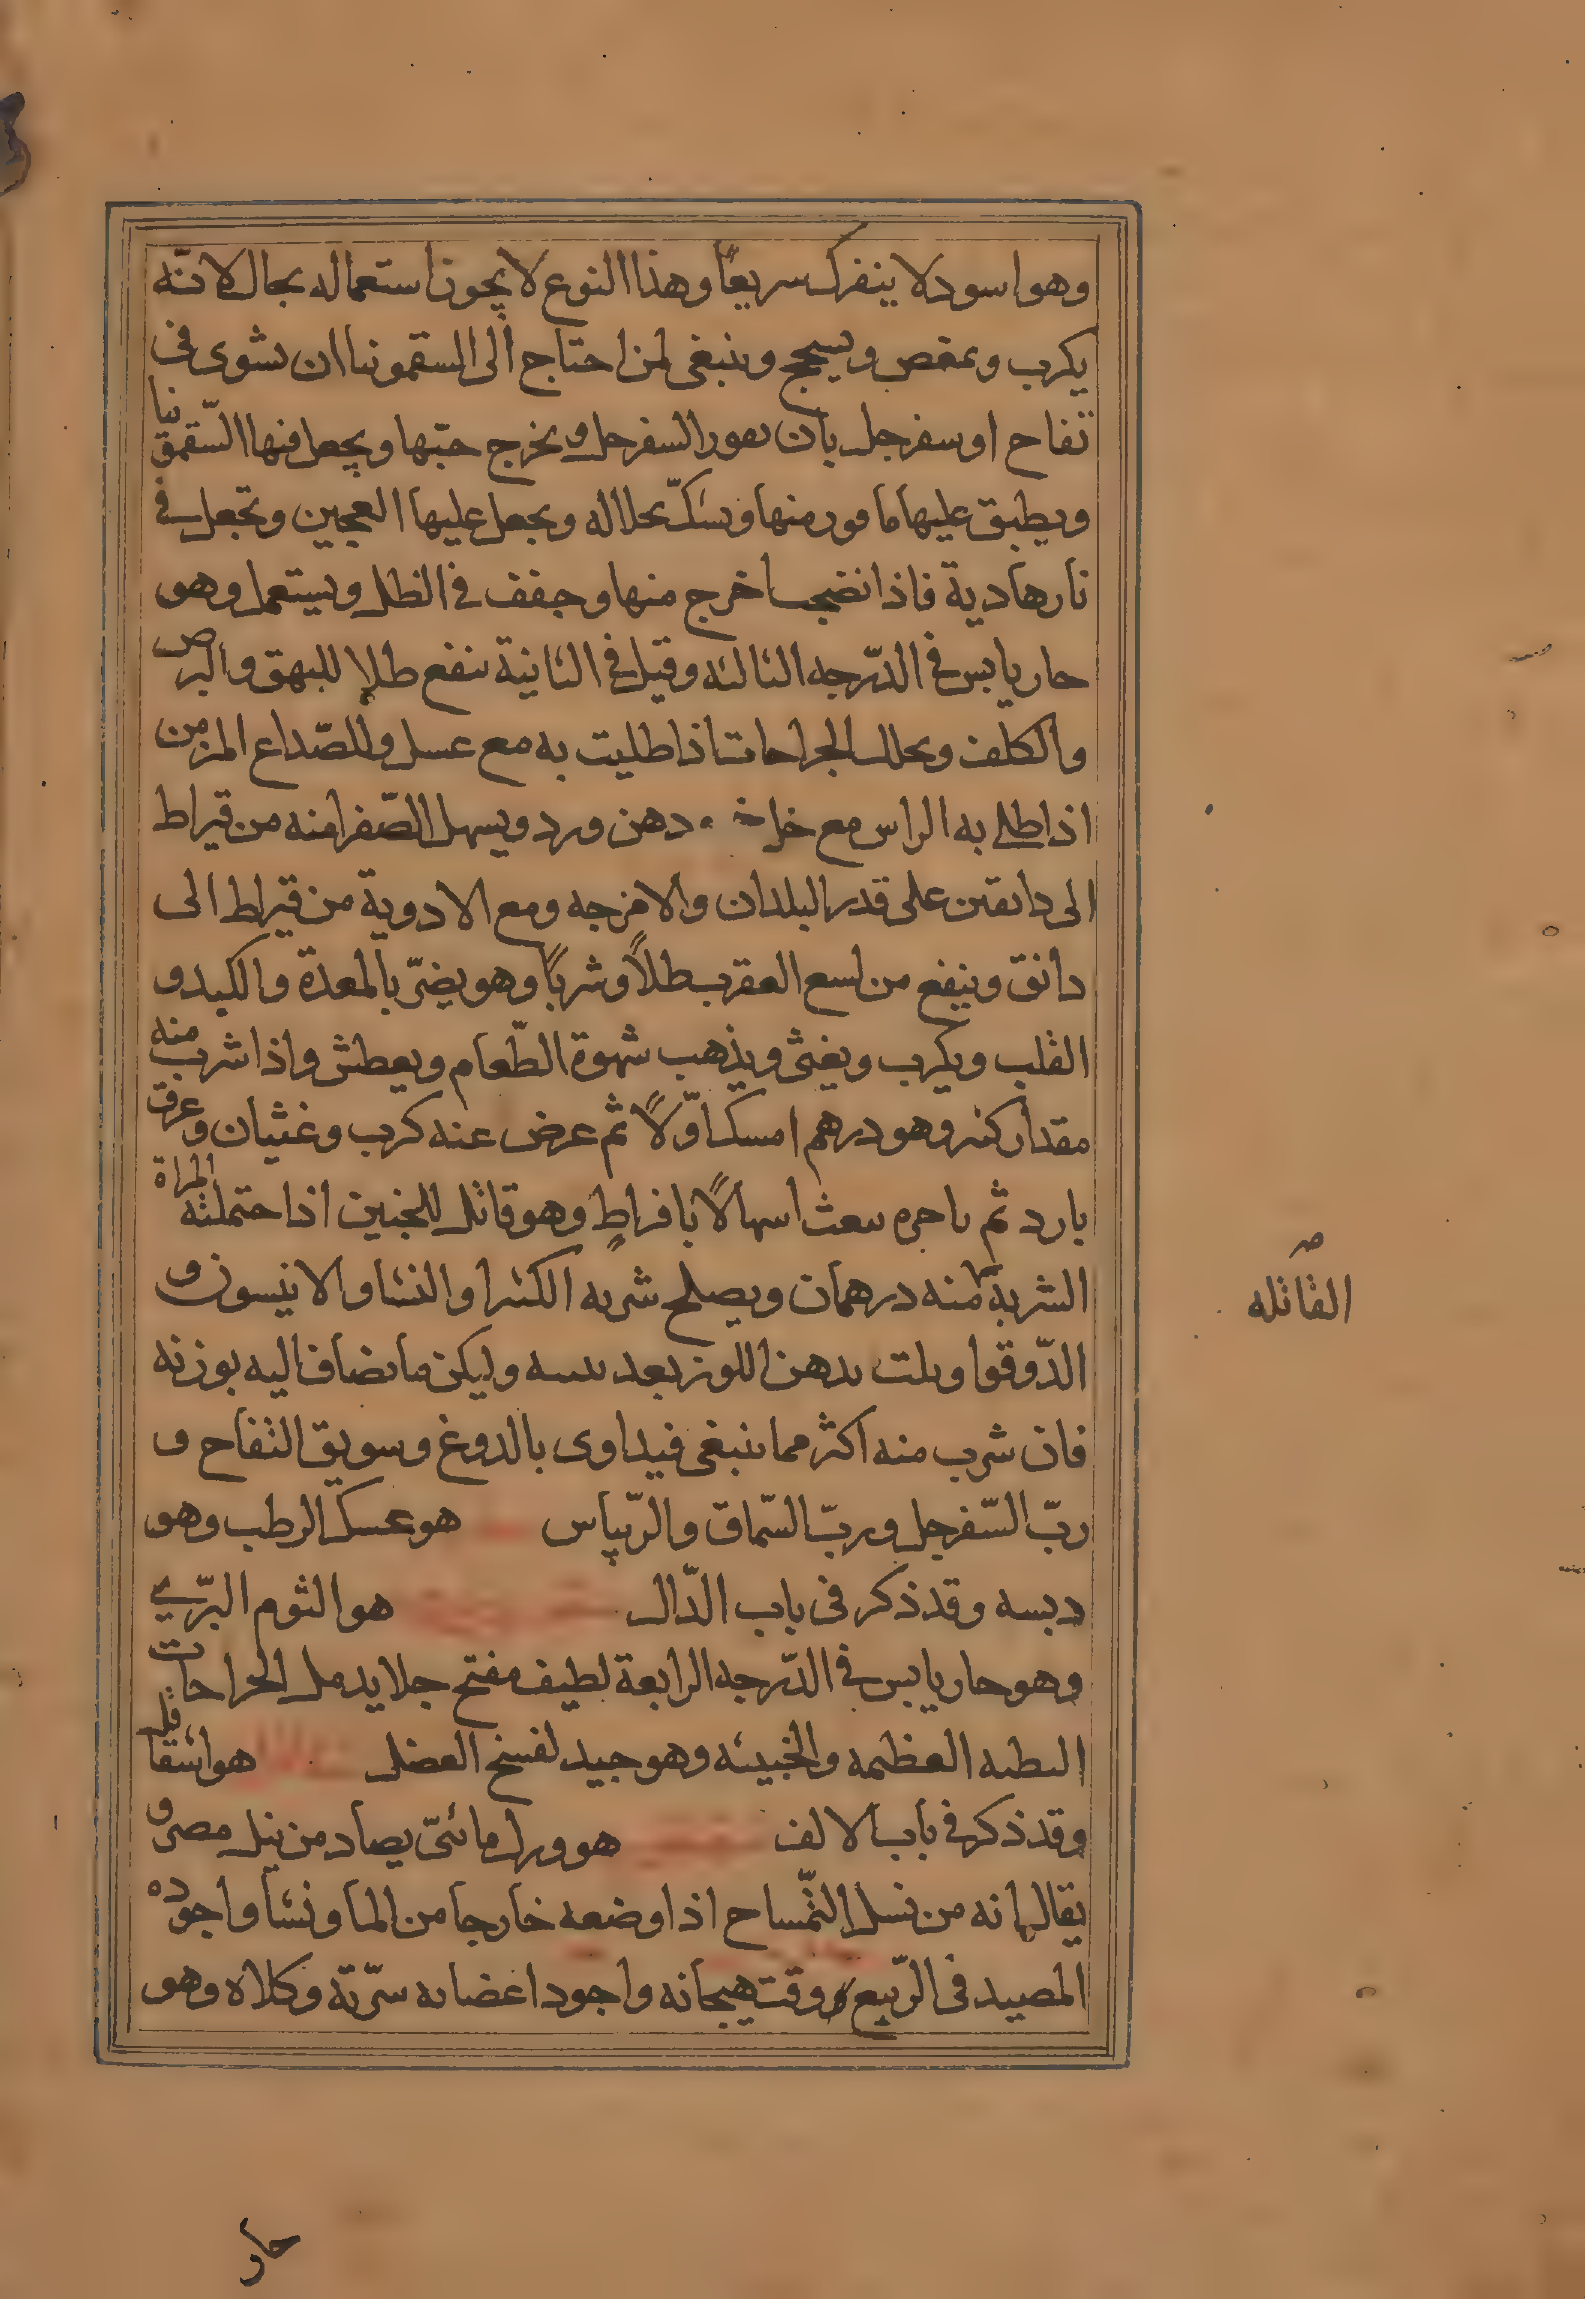 وهو اسود لا ينفرك سريعًا وهذا النوع لا يجوز استعماله بحال لانّه
يكرب ويمغص ويسحج وينبغى لمن احتاج الى السقمونيا ان يشوى فى
تفاح او سفرجل بان يقور السفرجل ويخرج حبّها ويجعل فيها السّقمونيا
ويطبق عليها ما قور منها ويشكّ بخلاله ويجعل عليها العجين وتجعل فى
نار هادية فاذا نضجت اخرج منها وجفف فى الظل ويستعمل وهو
حار يابس فى الدّرجه الثالثه وقيل فى الثانية ينفع طلاء للبهق والبرص
والكلف ويحلل الجراحات اذا طليت به مع عسل وللصّداع المزمن
اذا طلى به الراس مع خل دهن ورد ويسهل الصّفرا منه من قيراط
الى دانقين على قدر البلدان والامزجه ومع الادوية من قيراط الى
دانق وينفع من لسع العقرب طلاً وشربًا وهو يضرّ بالمعدة والكبد و
القلب ويكرب ويغثى ويذهب شهوة الطّعام ويعطش واذا شرب منه
مقدار كثير وهو درهم امسك اوّلاً ثم عرض عنه كرب وغثيان وعرق
بارد ثم باخره يبعث اسهالاً بافراطٍ وهو قاتل للجنين اذا احتملته المراة
الشربة منه درهمان ويصلح شربه الكثيرا والنشا والانيسون و
الدّوقوا ويلت بدهن اللوز بعد وليكن ما يضاف اليه بوزنه
فان شرب منه اكثر مما ينبغى فيداوى بالدوغ وسويق التفاح و
ربّ السّفرجل وربّ السّماق والرّيباس هو عسل الرطب وهو
دبسه وقد ذكر فى باب الدّال هو الثوم البرّي
وهو حار يابس فى الدّرجه الرابعة لطيف مفتح جلا يدمل الجراحات
العظيمه والخبيثه وهو جيد لفسخ العضل هو اشقاقل
وقد ذكر فى باب الالف هو ورل مائىّ يصاد من نيل مصر و
يقال انه من نسل التّمساح اذا وضعه خارجا من الما ونشا واجوده
المصيد فى الرّبيع ووقت هيجانه واجود اعضائه سرّته وكلاه وهو
القاتله
حار